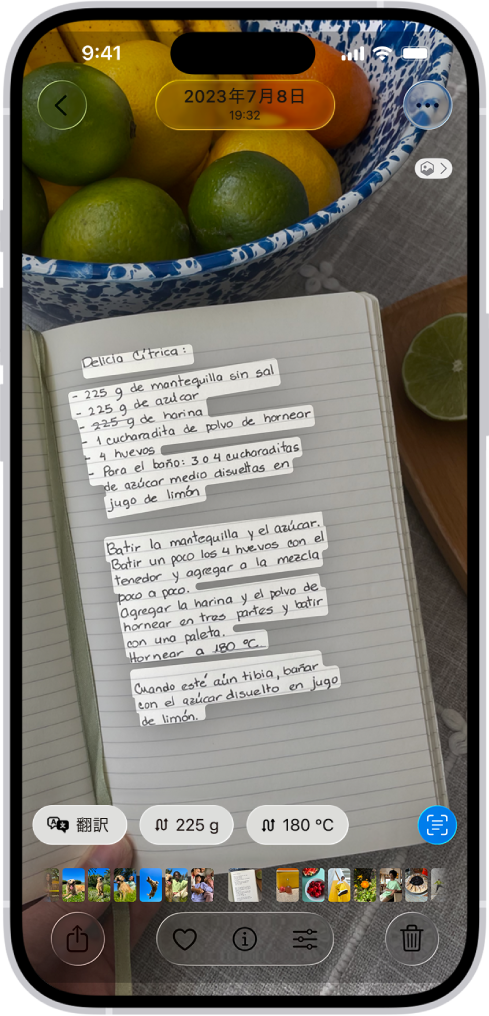 9:41
2023年7月8日
19:32
Delicia Cítrica:
- 225 g de mantequilla sin sal
- 225 g de azúcar
- 225 g de harina
- 1 cucharadita de polvo de hornear
- 4 huevos
- Para el baño: 3 o 4 cucharaditas
de azúcar medio disueltas en
jugo de limón
Batir la mantequilla y el azúcar.
Batir un poco los 4 huevos con el
tenedor y agregar a la mezcla
poco a poco.
Agregar la harina y el polvo de
hornear en tres partes y batir
con una paleta.
Hornear a 180 °C.
Cuando esté aún tibia, bañar
con el azúcar disuelto en jugo
de limón.
翻訳
225 g
180 °C